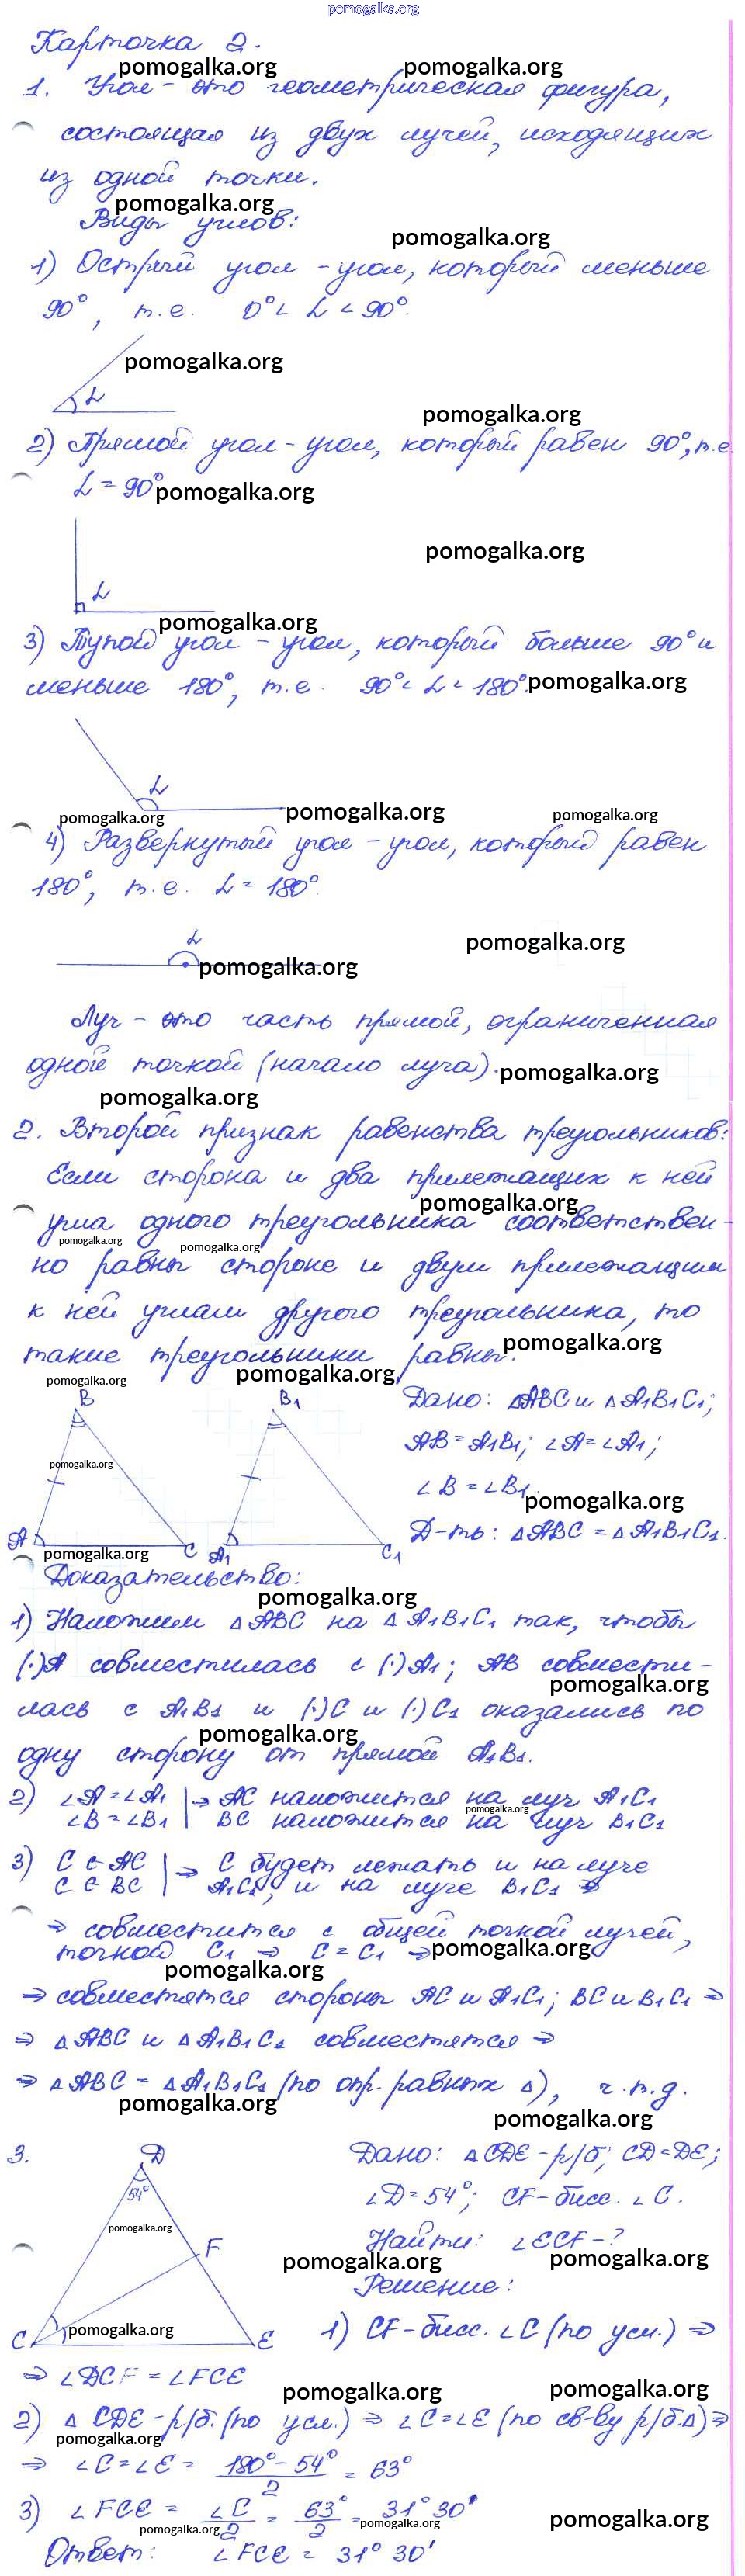 pomogalka.org
Карточка 2.
pomogalka.org pomogalka.org
1. Угол - это геометрическая фигура,
состоящая из двух лучей, исходящих
из одной точки.
pomogalka.org
Виды углов:
pomogalka.org
1) Острый угол - угол, который меньше
90°, т.е. 0° < α < 90°.
pomogalka.org
α
pomogalka.org
2) Прямой угол - угол, который равен 90°, т.е.
α = 90° pomogalka.org
pomogalka.org
α
pomogalka.org
3) Тупой угол - угол, который больше 90° и
меньше 180°, т.е. 90° < α < 180°. pomogalka.org
α
pomogalka.org pomogalka.org pomogalka.org
4) Развернутый угол - угол, который равен
180°, т.е. α = 180°.
α pomogalka.org
pomogalka.org
Луч - это часть прямой, ограниченная
одной точкой (начало луча). pomogalka.org
pomogalka.org
2. Второй признак равенства треугольников:
Если сторона и два прилежащих к ней
pomogalka.org
угла одного треугольника соответствен-
pomogalka.org pomogalka.org
но равны стороне и двум прилежащим
к ней углам другого треугольника, то
такие треугольники равны. pomogalka.org
pomogalka.org pomogalka.org
B B₁ Дано: △ABC и △A₁B₁C₁;
AB = A₁B₁; ∠A = ∠A₁;
pomogalka.org
∠B = ∠B₁.
pomogalka.org
A C A₁ C₁ Д-ть: △ABC = △A₁B₁C₁.
pomogalka.org
Доказательство:
pomogalka.org
1) Наложим △ABC на △A₁B₁C₁ так, чтобы
(·)A совместилась с (·)A₁; AB совмести-
pomogalka.org
лась с A₁B₁ и (·)C и (·)C₁ оказались по
pomogalka.org
одну сторону от прямой A₁B₁.
2) ∠A = ∠A₁ | ⇒ AC наложится на луч A₁C₁
pomogalka.org
∠B = ∠B₁ | BC наложится на луч B₁C₁
3) C ∈ AC | ⇒ C будет лежать и на луче
C ∈ BC | A₁C₁, и на луче B₁C₁ ⇒
⇒ совместится с общей точкой лучей,
точкой C₁ ⇒ C = C₁ ⇒ pomogalka.org
pomogalka.org
⇒ совместятся стороны AC и A₁C₁; BC и B₁C₁ ⇒
⇒ △ABC и △A₁B₁C₁ совместятся ⇒
⇒ △ABC = △A₁B₁C₁ (по опр. равных △), ч.т.д.
pomogalka.org pomogalka.org
3. D Дано: △CDE - р/б; CD = DE;
54° ∠D = 54°; CF - бисс. ∠C.
pomogalka.org
F Найти: ∠ECF - ?
pomogalka.org pomogalka.org
Решение:
pomogalka.org
C E 1) CF - бисс. ∠C (по усл.) ⇒
⇒ ∠DCF = ∠FCE
pomogalka.org pomogalka.org
2) △CDE - р/б. (по усл.) ⇒ ∠C = ∠E (по св-ву р/б.△) ⇒
pomogalka.org
⇒ ∠C = ∠E = (180° - 54°)/2 = 63°
3) ∠FCE = ∠C/2 = 63°/2 = 31°30'
pomogalka.org pomogalka.org pomogalka.org
Ответ: ∠FCE = 31°30'